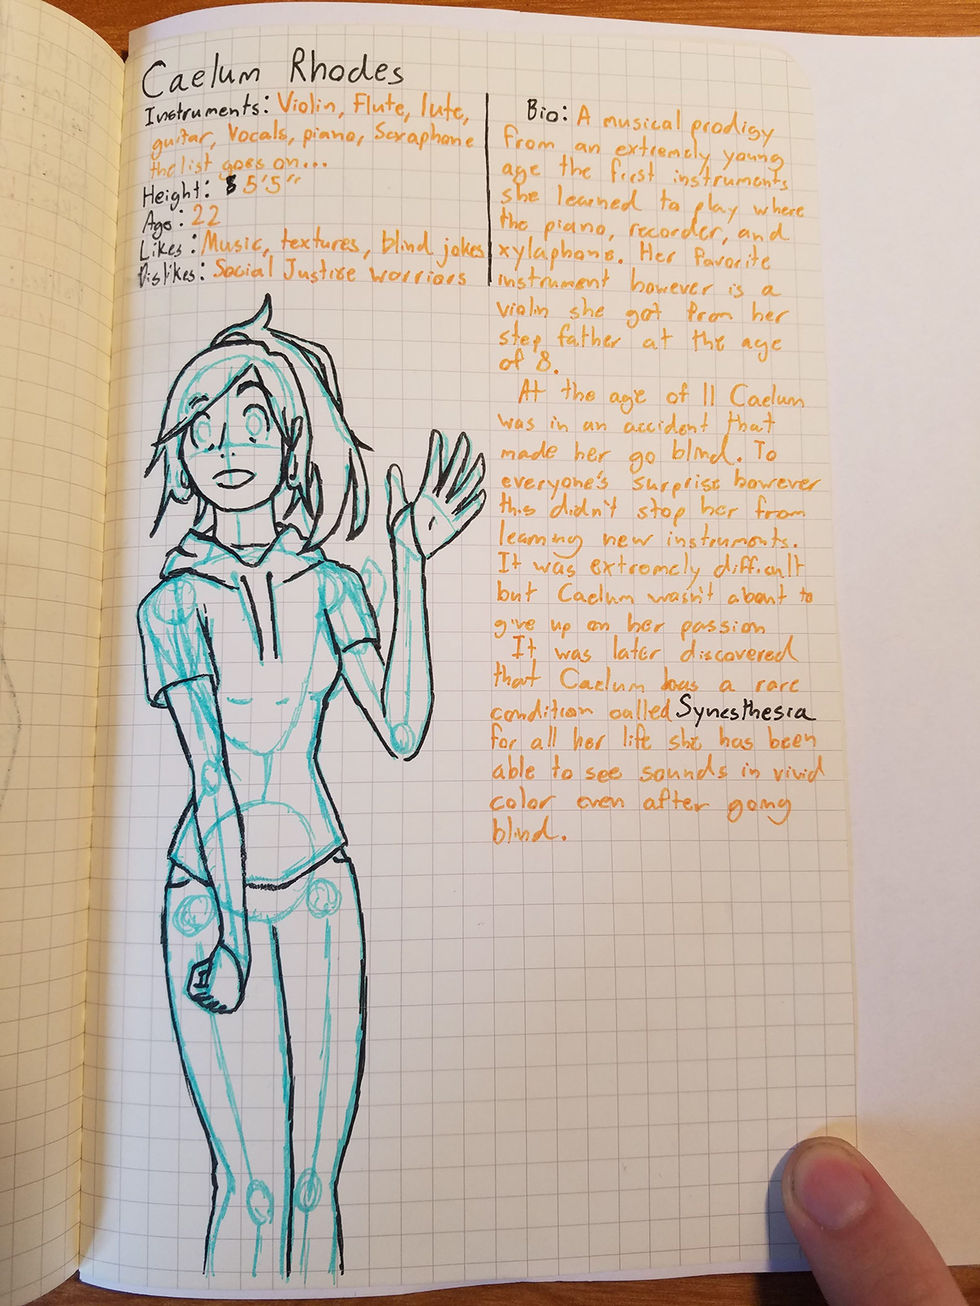 Caelum Rhodes
Instruments: Violin, Flute, lute,
guitar, Vocals, piano, Saxaphone
the list goes on...
Height: 5'5"
Age: 22
Likes: Music, textures, blind jokes
Dislikes: Social Justice warriors
Bio: A musical prodigy
from an extremely young
age the first instruments
she learned to play where
the piano, recorder, and
xylaphone. Her favorite
instrument however is a
violin she got from her
step father at the age
of 8.
At the age of 11 Caelum
was in an accident that
made her go blind. To
everyone's surprise however
this didn't stop her from
learning new instruments.
It was extremely difficult
but Caelum wasn't about to
give up on her passion
It was later discovered
that Caelum has a rare
condition called Synesthesia
for all her life she has been
able to see sounds in vivid
color even after going
blind.